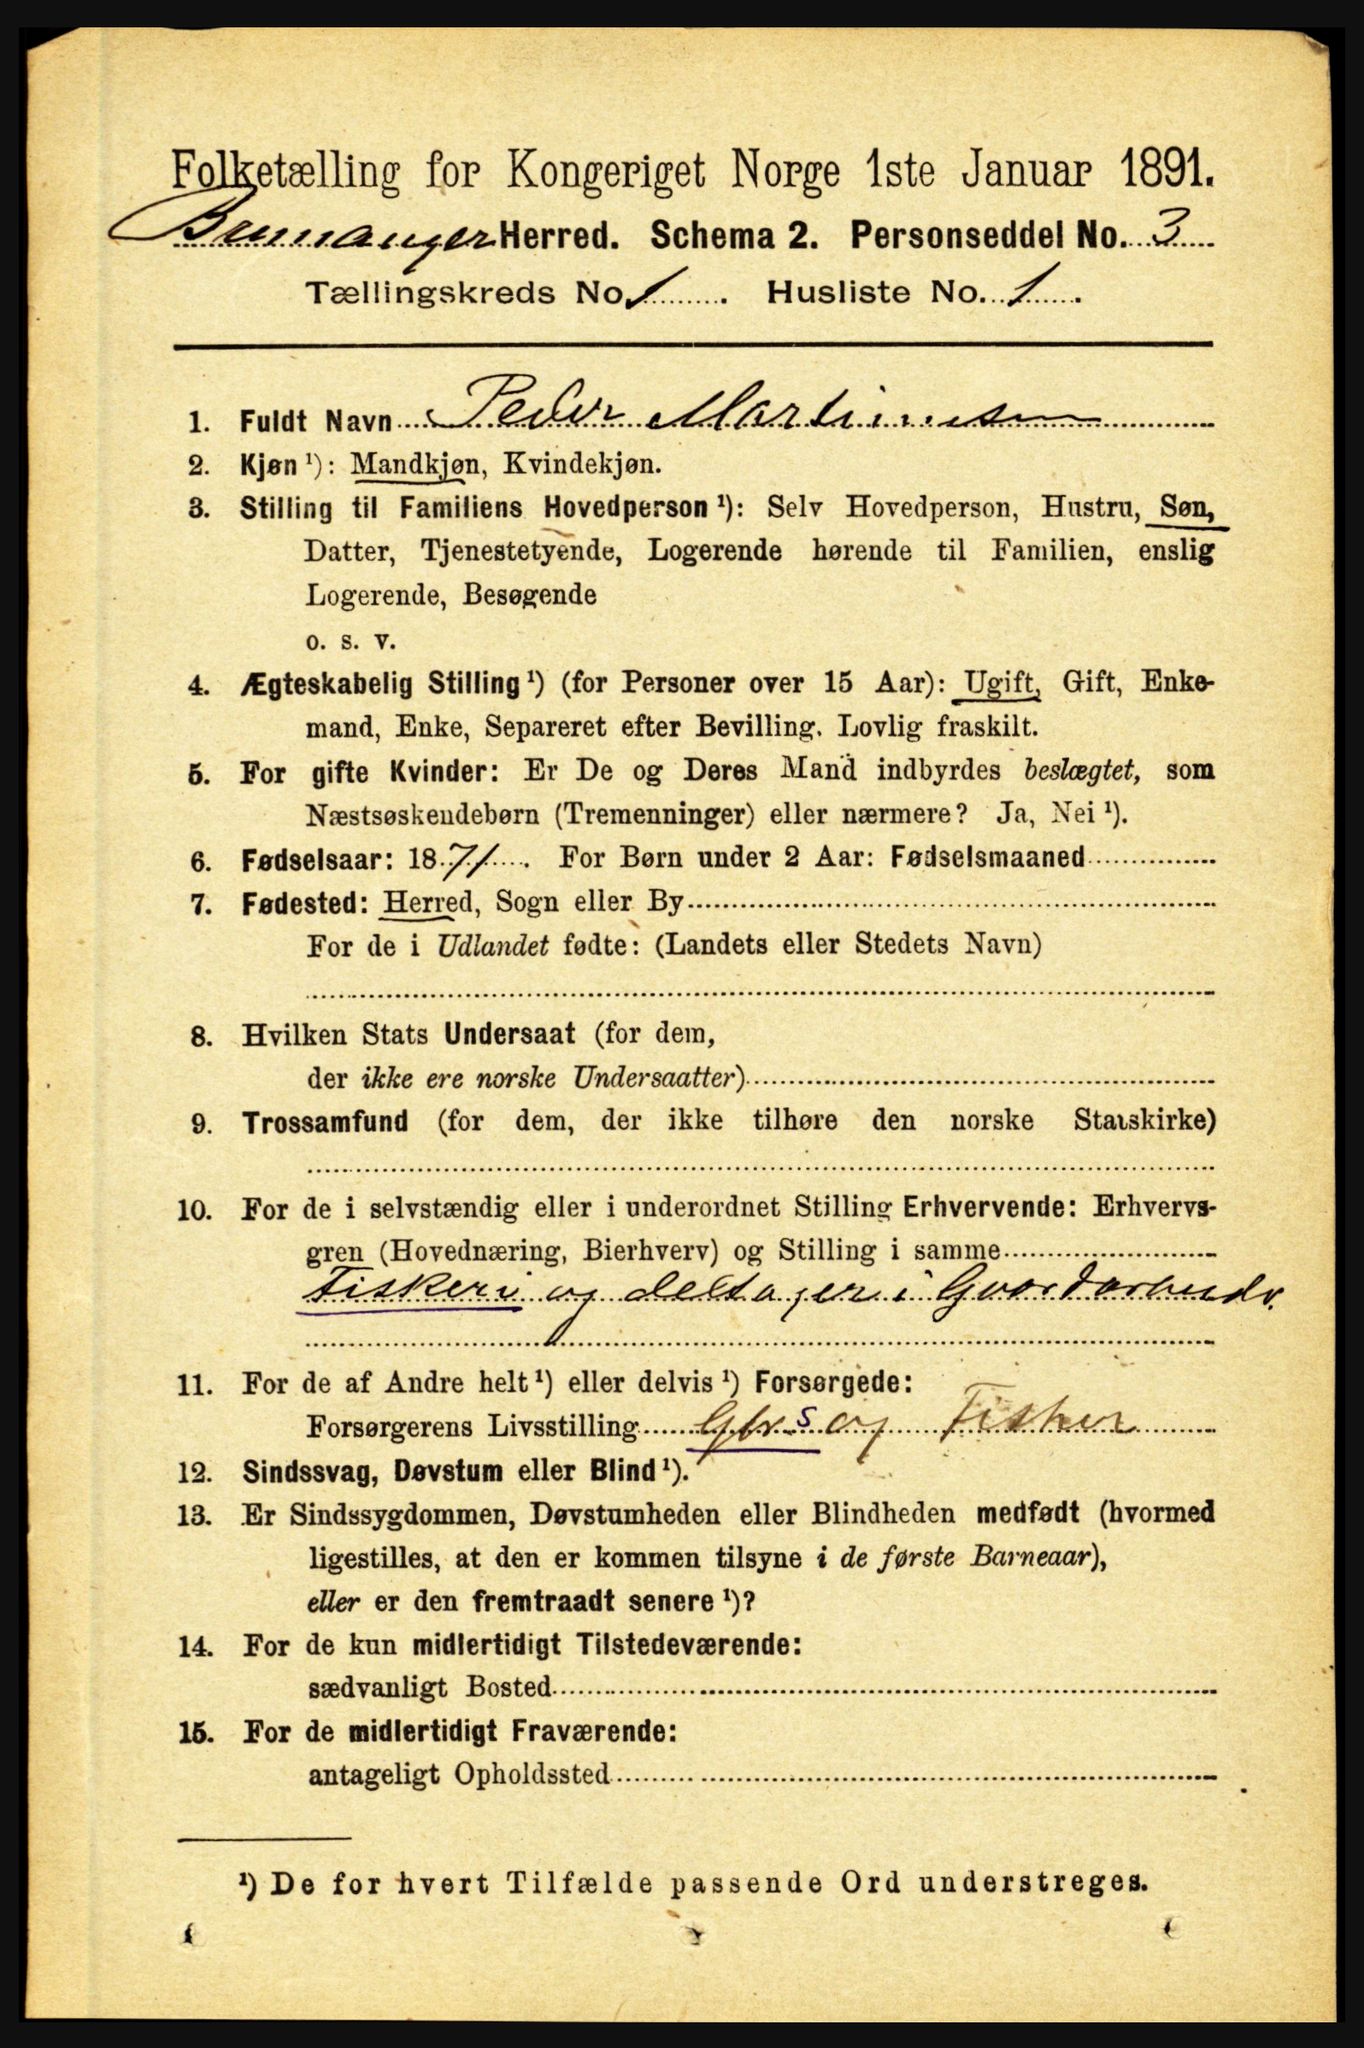 Folketælling for Kongeriget Norge 1ste Januar 1891.
Bremanger Herred. Schema 2. Personseddel No. 3
Tællingskreds No. 1. Husliste No. 1.
1. Fuldt Navn Peder Martinusen
2. Kjøn ¹): Mandkjøn, Kvindekjøn.
3. Stilling til Familiens Hovedperson ¹): Selv Hovedperson, Hustru, Søn,
Datter, Tjenestetyende, Logerende hørende til Familien, enslig
Logerende, Besøgende
o. s. v.
4. Ægteskabelig Stilling ¹) (for Personer over 15 Aar): Ugift, Gift, Enke-
mand, Enke, Separeret efter Bevilling. Lovlig fraskilt.
5. For gifte Kvinder: Er De og Deres Mand indbyrdes beslægtet, som
Næstsøskendebørn (Tremenninger) eller nærmere? Ja, Nei ¹).
6. Fødselsaar: 1871. For Børn under 2 Aar: Fødselsmaaned
7. Fødested: Herred, Sogn eller By
For de i Udlandet fødte: (Landets eller Stedets Navn)
8. Hvilken Stats Undersaat (for dem,
der ikke ere norske Undersaatter)
9. Trossamfund (for dem, der ikke tilhøre den norske Statskirke)
10. For de i selvstændig eller i underordnet Stilling Erhvervende: Erhvervs-
gren (Hovednæring, Bierhverv) og Stilling i samme
Fiskeri og deltager i Gaardarbeide.
11. For de af Andre helt ¹) eller delvis ¹) Forsørgede:
Forsørgerens Livsstilling Gbrs og Fisker
12. Sindssvag, Døvstum eller Blind ¹).
13. Er Sindssygdommen, Døvstumheden eller Blindheden medfødt (hvormed
ligestilles, at den er kommen tilsyne i de første Barneaar),
eller er den fremtraadt senere ¹)?
14. For de kun midlertidigt Tilstedeværende:
sædvanligt Bosted
15. For de midlertidigt Fraværende:
antageligt Opholdssted
¹) De for hvert Tilfælde passende Ord understreges.